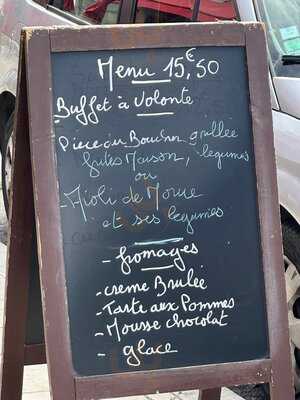 Menu 15,50 €
Buffet à volonte
Piece du Boucher grillée
frites Maison, legumes
ou
- Aioli de Morue
et ses legumes
- fromages
- creme Brulée
- Tarte aux Pommes
- Mousse chocolat
- glace